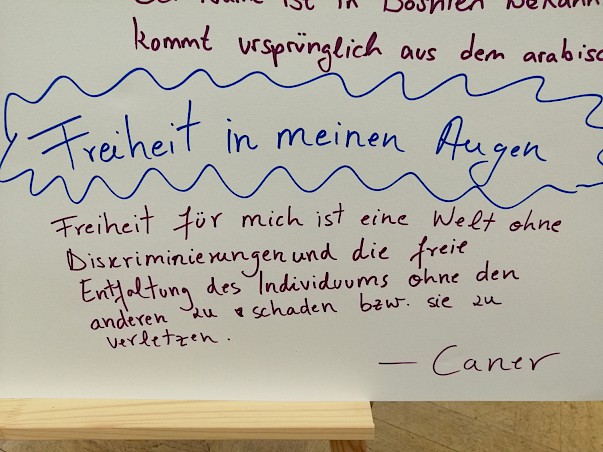 Name ist in Bosnien bekann
kommt ursprünglich aus dem arabisc
Freiheit in meinen Augen
Freiheit für mich ist eine Welt ohne
Diskriminierungen und die freie
Entfaltung des Individuums ohne den
anderen zu schaden bzw. sie zu
verletzen.
— Caner